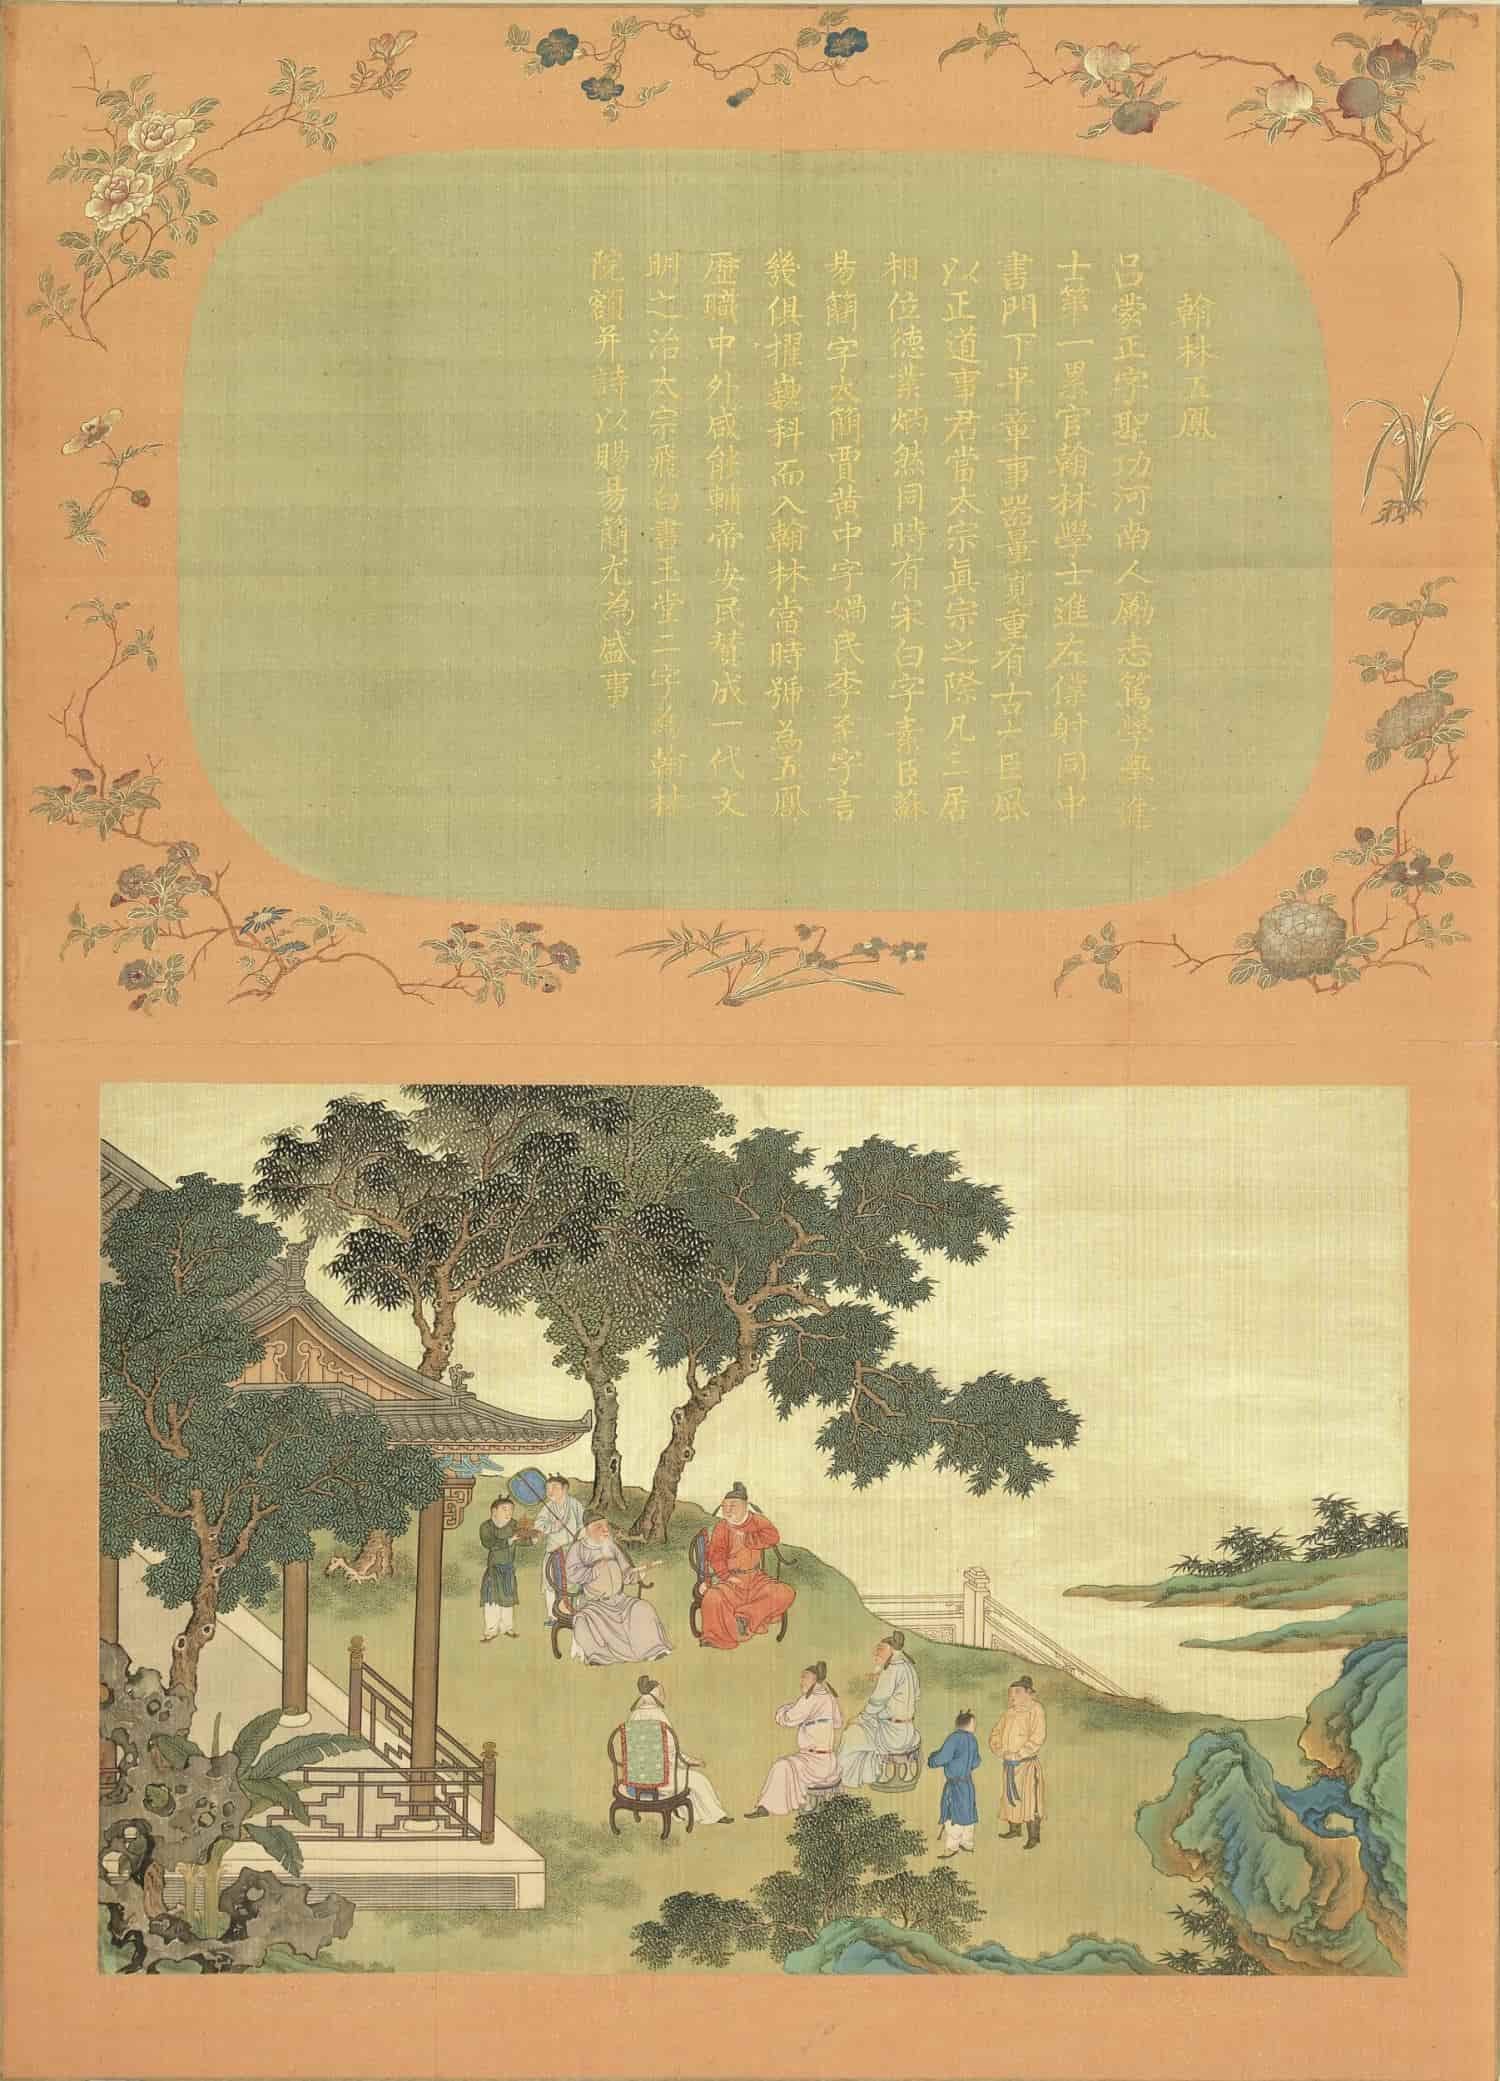 翰林五鳳
呂蒙正字聖功河南人勵志篤學舉進
士第一累官翰林學士進左僕射同中
書門下平章事器量寬重有古大臣風
以正道事君當太宗真宗之際凡三居
相位德業炳然同時有宋白字素臣蘇
易簡字太簡賈黃中字媧民李至字言
幾俱擢巍科而入翰林當時號為五鳳
歷職中外咸能輔帝安民贊成一代文
明之治太宗飛白書玉堂二字為翰林
院額并詩以賜易簡尤為盛事